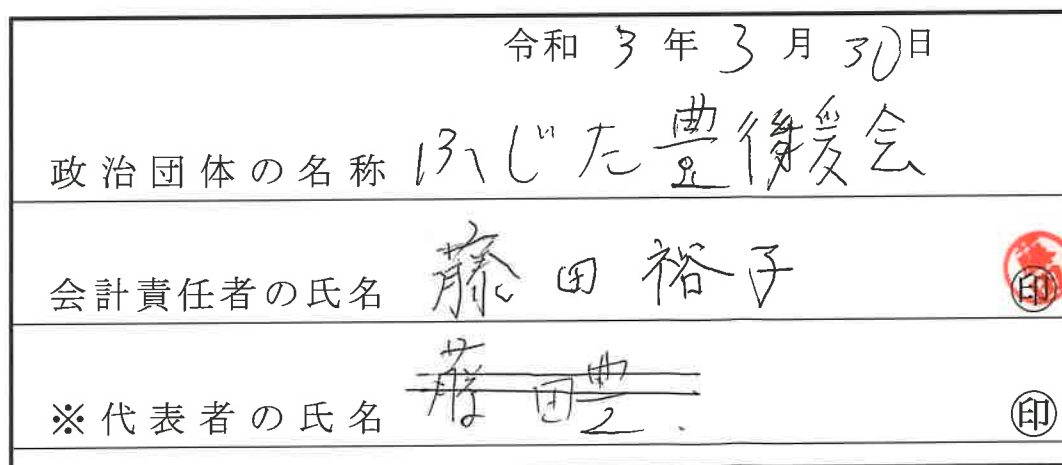 令和 3 年 3 月 30日
政治団体の名称 ふじた豊後援会
会計責任者の氏名 藤田裕子 印
※代表者の氏名 藤田豊 印